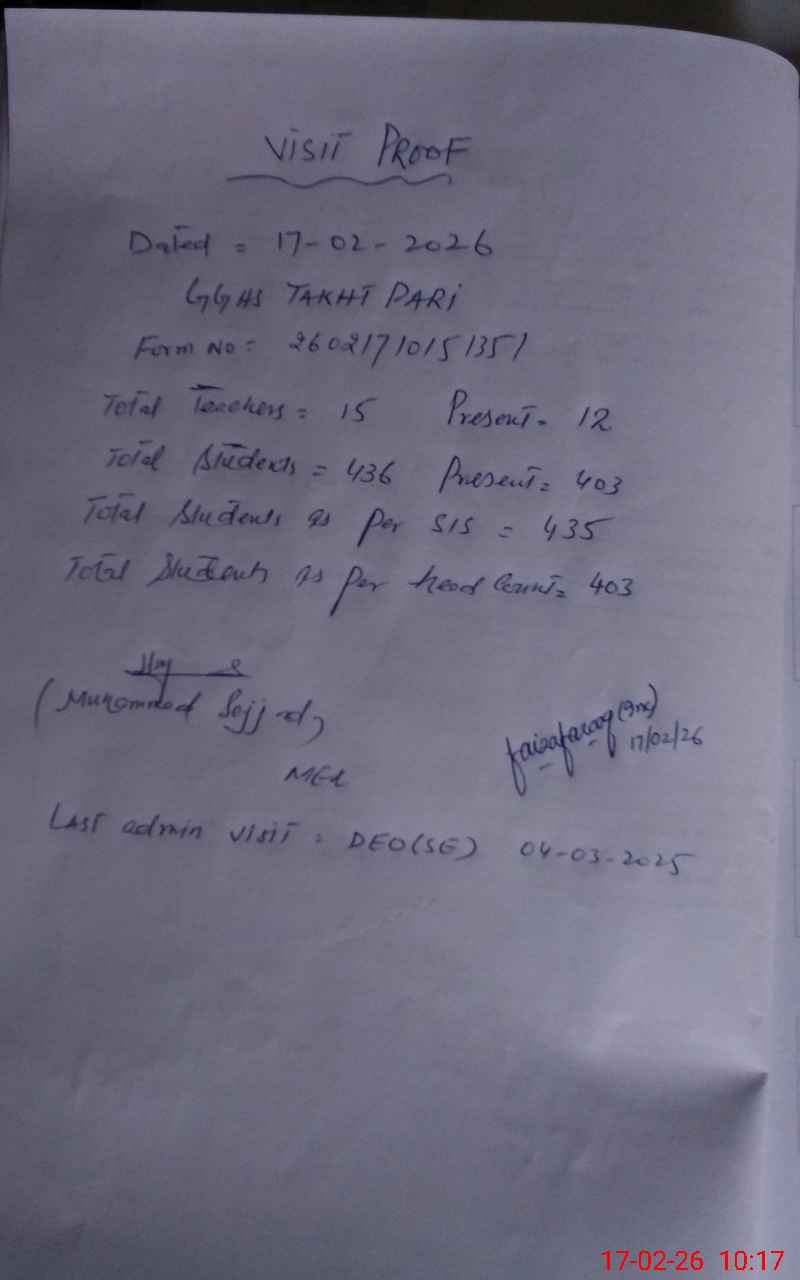 VISIT PROOF
Dated = 17-02-2026
GGHS TAKHT PARI
Form No = 26021710151351
Total Teachers = 15 Present = 12
Total Students = 436 Present = 403
Total Students as per SIS = 435
Total Students as per head Count = 403
(Muhammad Sajjad)
faizafarooq 17/02/26
MEA
LAST admin visit = DEO(SE) 04-03-2025
17-02-26 10:17